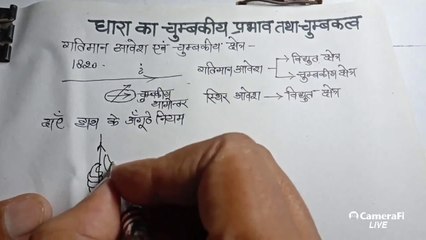 धारा का चुम्बकीय प्रभाव तथा चुम्बकत्व
गतिमान आवेश एवं चुम्बकीय क्षेत्र -
1820. i गतिमान आवेश → विद्युत क्षेत्र
→ चुम्बकीय क्षेत्र
चुम्बकीय
स्थिर आवेश → विद्युत क्षेत्र
दाएँ हाथ के अँगूठे नियम
CameraFi
LIVE